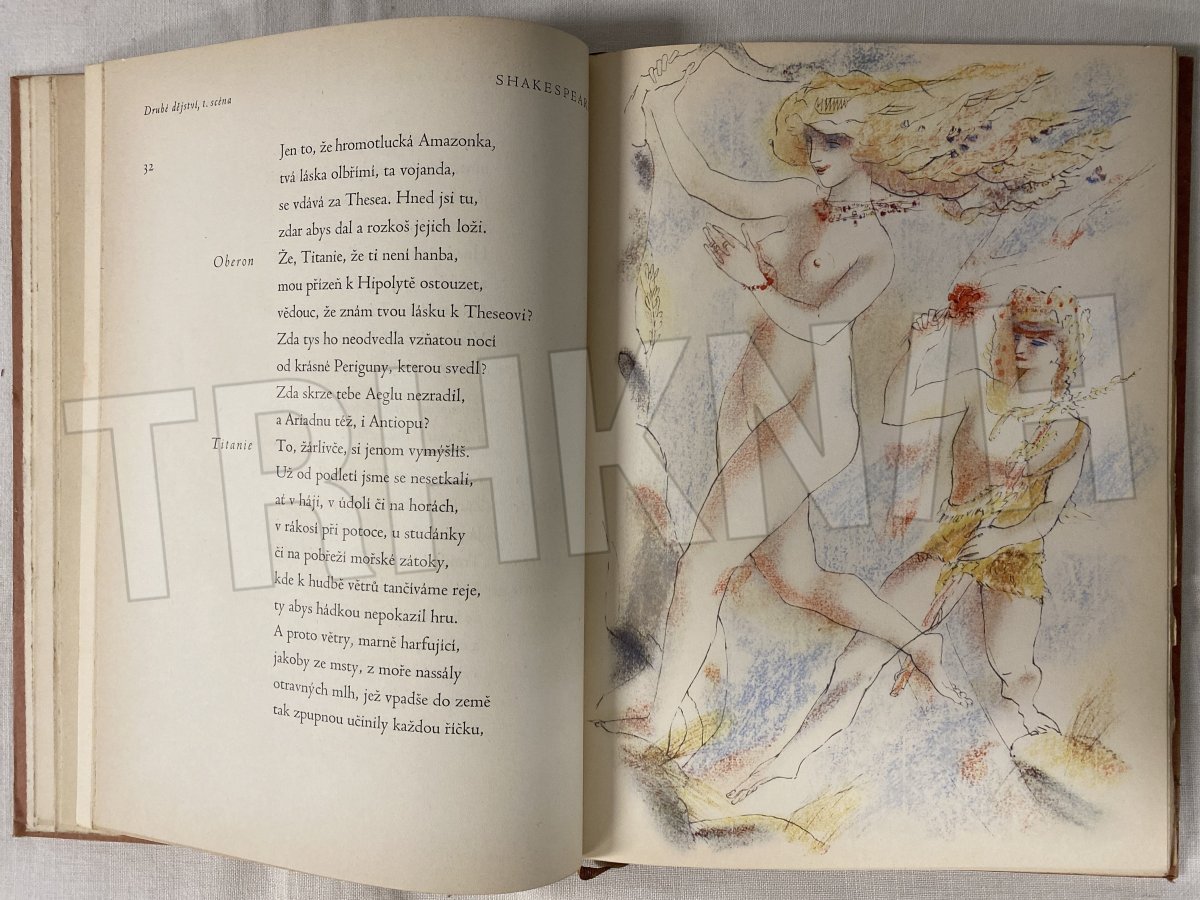 Druhé dějství, 1. scéna
SHAKESPEAR
32
Jen to, že hromotlucká Amazonka,
tvá láska olbřímí, ta vojanda,
se vdává za Thesea. Hned jsi tu,
zdar abys dal a rozkoš jejich loži.
Oberon Že, Titanie, že ti není hanba,
mou přízeň k Hipolytě ostouzet,
vědouc, že znám tvou lásku k Theseovi?
Zda tys ho neodvedla vzňatou nocí
od krásné Periguny, kterou svedl?
Zda skrze tebe Aeglu nezradil,
a Ariadnu též, i Antiopu?
Titanie To, žárlivče, si jenom vymýšlíš.
Už od podletí jsme se nesetkali,
ať v háji, v údolí či na horách,
v rákosí při potoce, u studánky
či na pobřeží mořské zátoky,
kde k hudbě větrů tančíváme reje,
ty abys hádkou nepokazil hru.
A proto větry, marně harfující,
jakoby ze msty, z moře nassály
otravných mlh, jež vpadše do země
tak zpupnou učinily každou říčku,
TRHKNIH